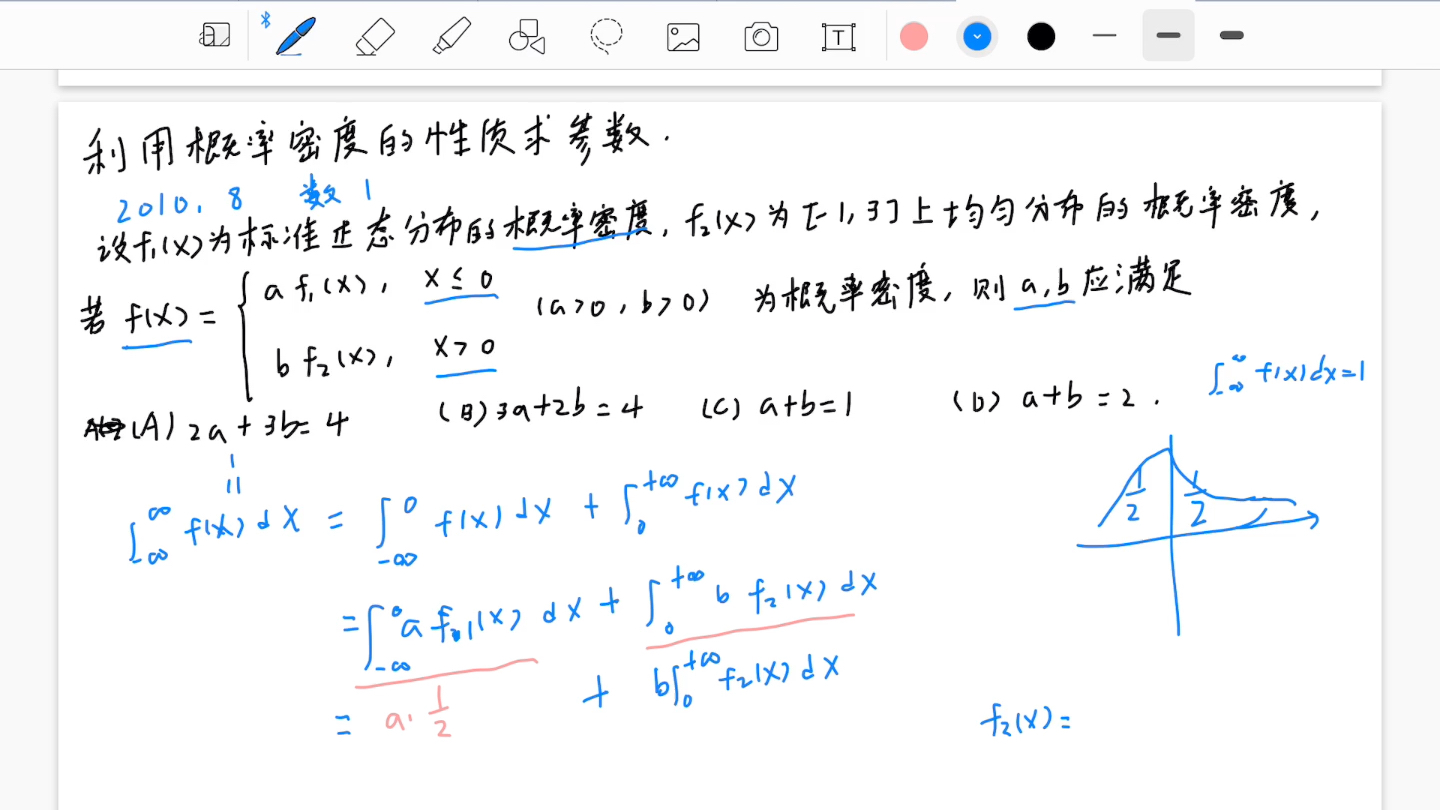 利用概率密度的性质求参数.
2010. 8 数1
设f₁(x)为标准正态分布的概率密度, f₂(x)为[-1,3]上均匀分布的概率密度,
若 f(x) = { a f₁(x), x ≤ 0
b f₂(x), x > 0
(a>0, b>0) 为概率密度, 则 a,b 应满足
∫_{-∞}^{∞} f(x)dx=1
(A) 2a+3b=4 (B) 3a+2b=4 (C) a+b=1 (D) a+b=2.
1
=
∫_{-∞}^{∞} f(x)dx = ∫_{-∞}^{0} f(x)dx + ∫_{0}^{+∞} f(x)dx
1/2 1/2
= ∫_{-∞}^{0} a f₁(x) dx + ∫_{0}^{+∞} b f₂(x) dx
= a·1/2 + b∫_{0}^{+∞} f₂(x)dx
f₂(x)=
T